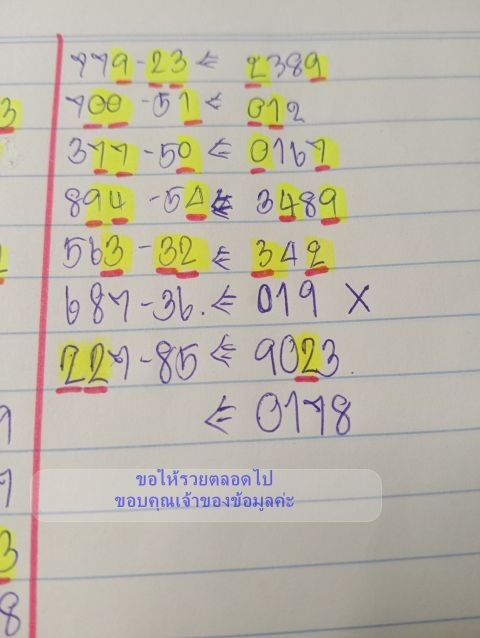 779-23 ⋲ 2389
3
700-51 ⋲ 012
377-50 ⋲ 0167
894-54 ⋲ 3489
563-32 ⋲ 342
687-36. ⋲ 019 X
227-85 ⋲ 9023.
⋲ 0178
9
7
3
8
ขอให้รวยตลอดไป
ขอบคุณเจ้าของข้อมูลค่ะ